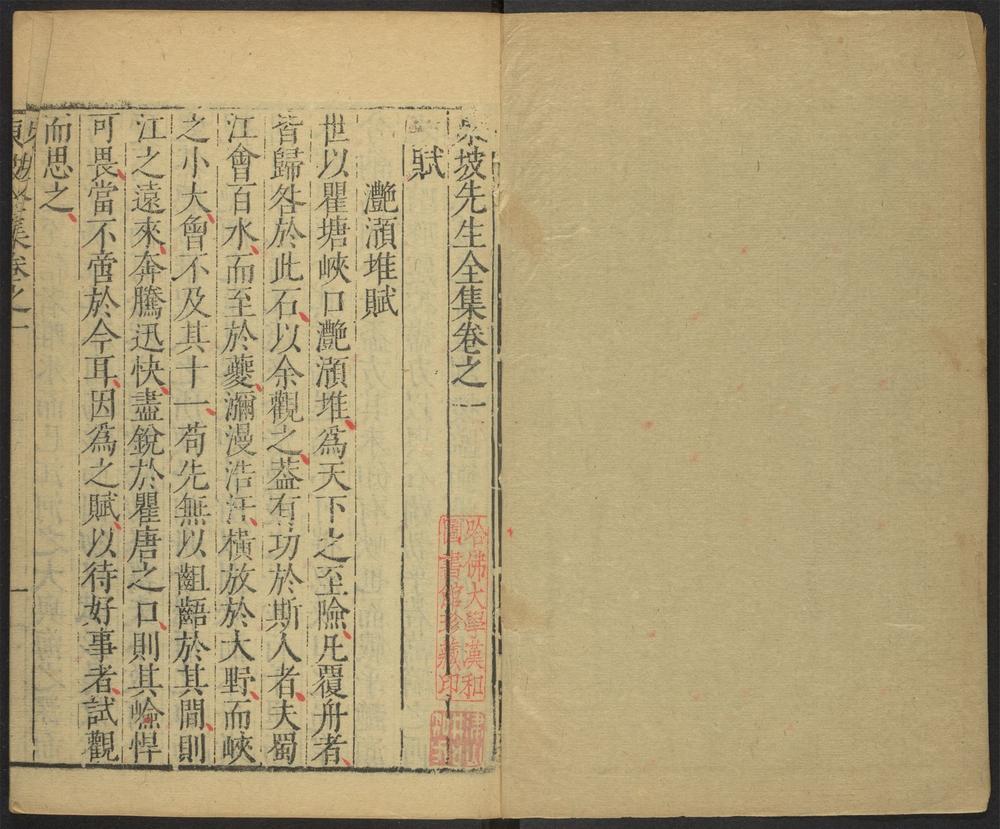 東坡先生全集卷之一
賦
灔澦堆賦
世以瞿塘峽口灔澦堆為天下之至險凡覆舟者
皆歸咎於此石以余觀之葢有功於斯人者夫蜀
江會百水而至於夔瀰漫浩汗橫放於大野而峽
之小大曾不及其十一苟先無以齟齬於其間則
江之遠來奔騰迅快盡銳於瞿唐之口則其嶮悍
可畏當不啻於今耳因為之賦以待好事者試觀
而思之
東坡全集卷之一
一
哈佛大學漢和
圖書館珍藏印